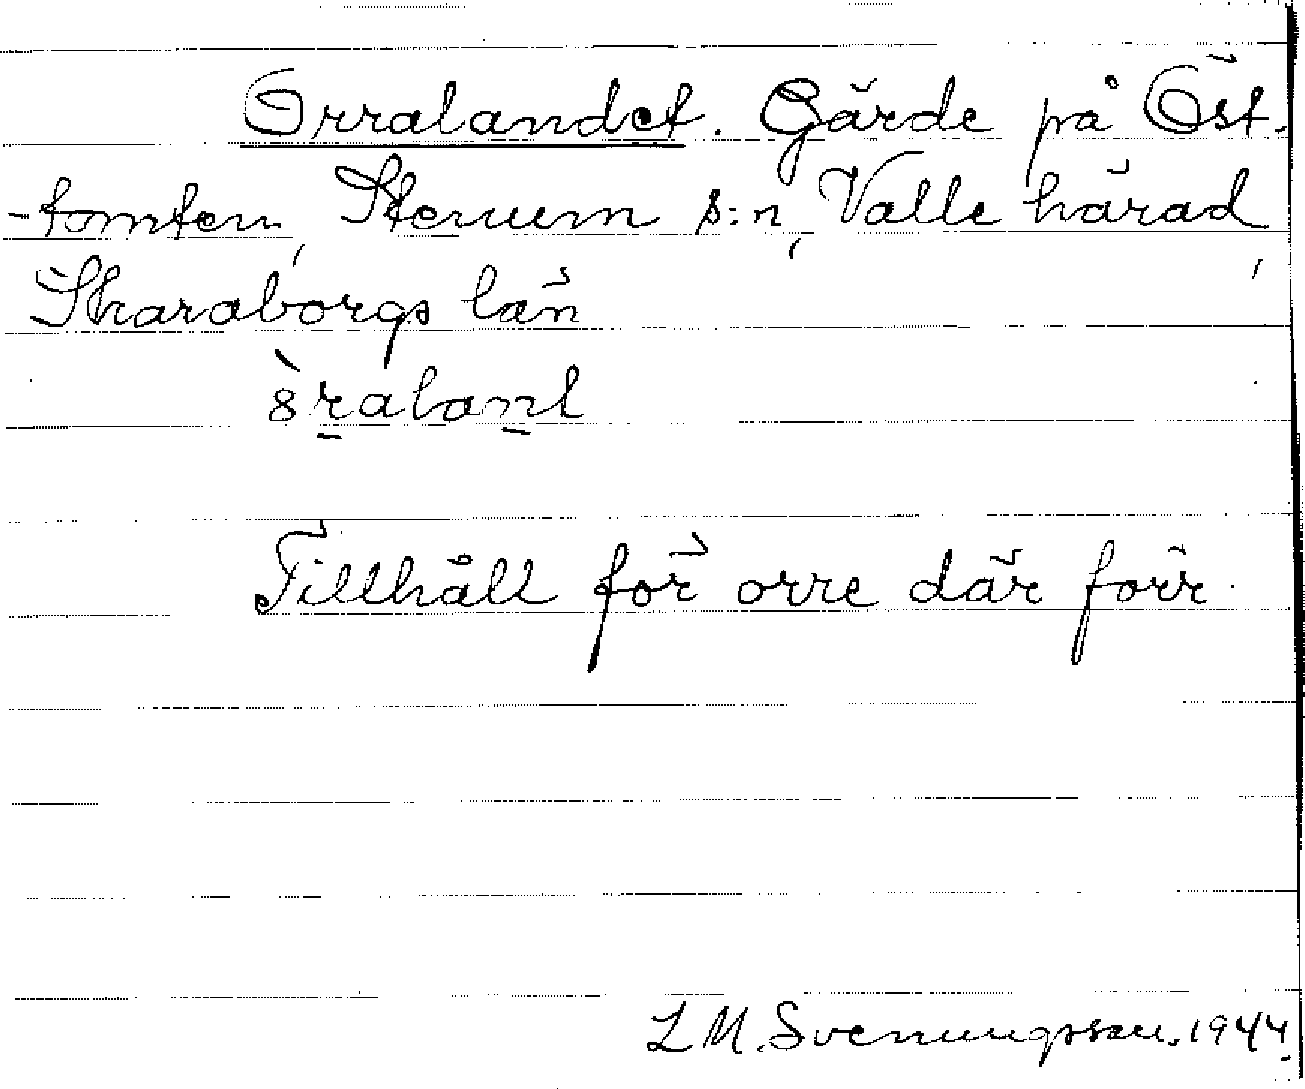 Orralandet. Gärde på Öst.
-tomten, Stenum s:n, Valle härad,
Skaraborgs län
8̀ralanl
Tillhåll för orre där förr.
L M. Svenungsson. 1944.